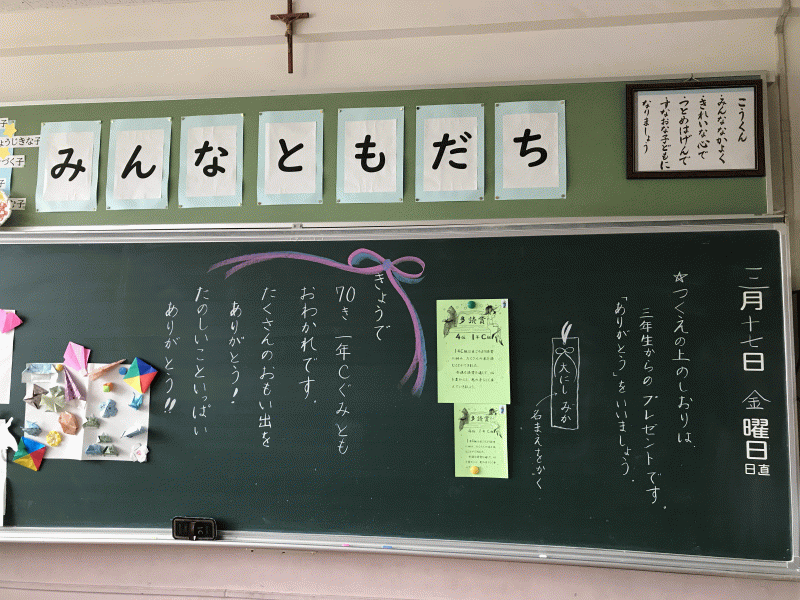 みんなともだち
こうくん
・みんななかよく
・きれいな心で
・つとめはげんで
すなおな子どもに
なりましょう
三月十七日 金曜日
日直
☆つくえの上のしおりは、
三年生からのプレゼントです。
「ありがとう」をいいましょう。
大にし みか
名まえをかく
多読賞
4組 1年C組
多読賞
4組 1年C組
きょうで
70き 一年Cぐみとも
おわかれです。
たくさんのおもい出を
ありがとう!
たのしいこといっぱい
ありがとう!!
ょうじきな子
づく子
な子